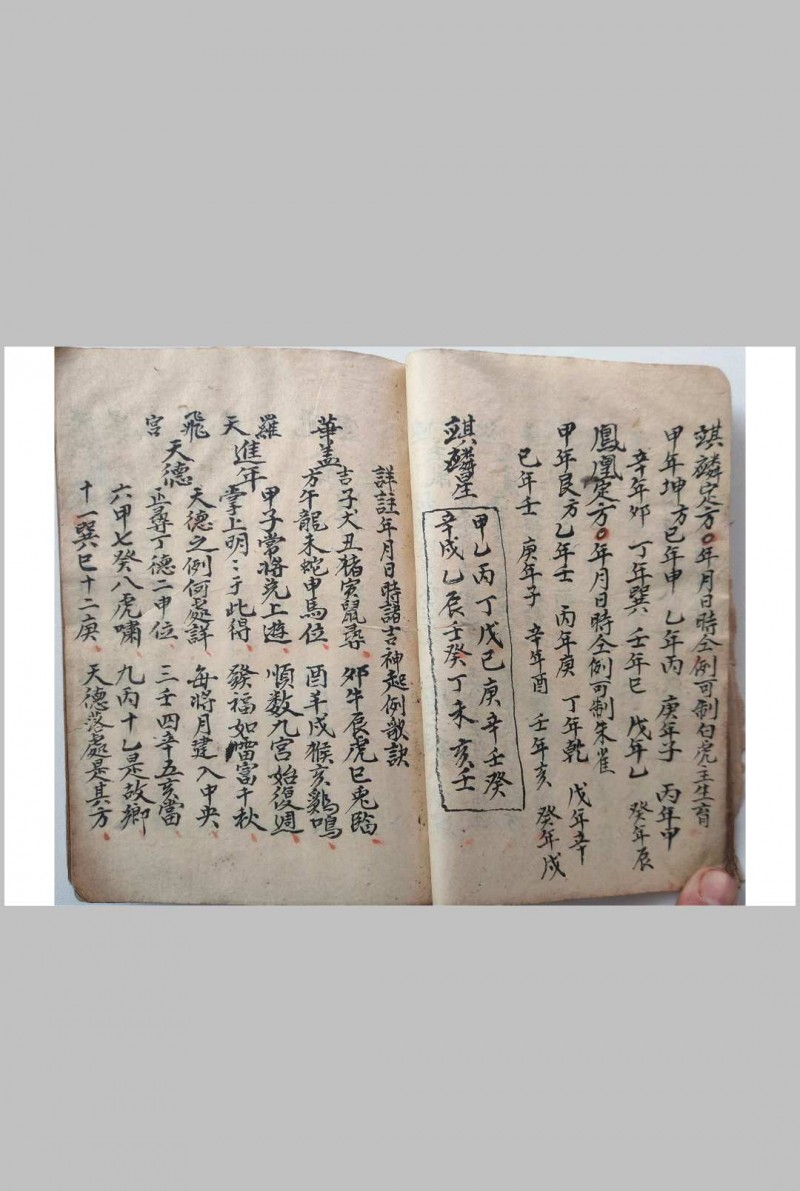 騏麟定方〇年月日時仝例可制白虎主生育
甲年坤方 己年申 乙年丙 庚年子 丙年甲
辛年卯 丁年巽 壬年巳 戊年乙 癸年辰
鳳凰定方〇年月日時仝例可制朱雀
甲年艮方 乙年壬 丙年庚 丁年乾 戊年辛
己年壬 庚年子 辛年酉 壬年亥 癸年戌
騏麟星
甲乙丙丁戊己庚辛壬癸
辛戌乙辰壬癸丁未亥壬
詳註年月日時諸吉神起例歌訣
華盖
吉子犬丑猪寅鼠尋 卯牛辰虎巳兎臨
方午龍未蛇申馬位 酉羊戌猴亥鷄鳴
羅天進年
甲子常將兊上遊 順数九宮始復週
掌上明〻于此得 發福如雷富千秋
飛宮天德
天德之例何處詳 每將月建入中央
正尋丁德二申位 三壬四辛五亥當
六甲七癸八虎嘯 九丙十乙是故鄉
十一巽巳十二庚 天德落處是其方